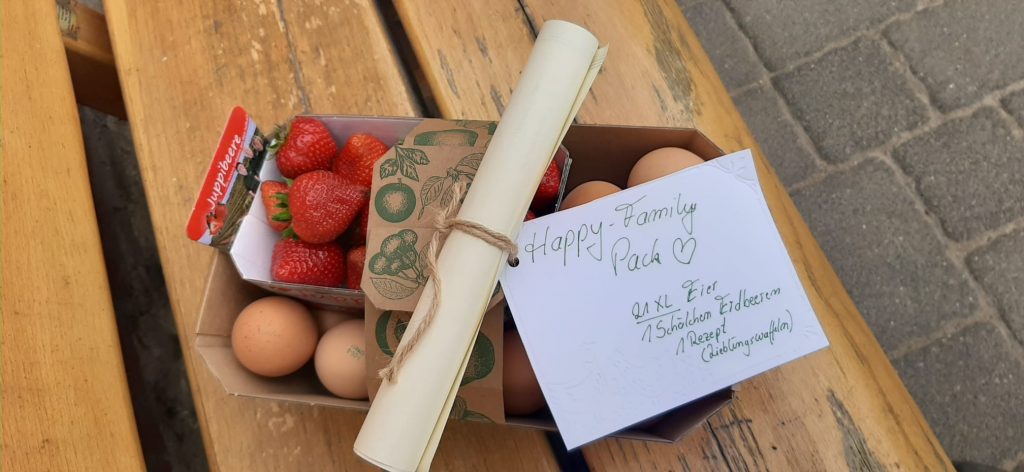 Juppibeere
Happy-Family
Pack ♡
21 XL Eier
1 Schälchen Erdbeeren
1 Rezept
(Lieblingswaffeln)